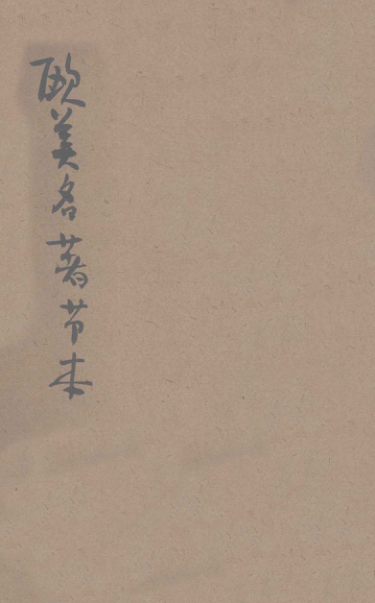 欧美名著节本